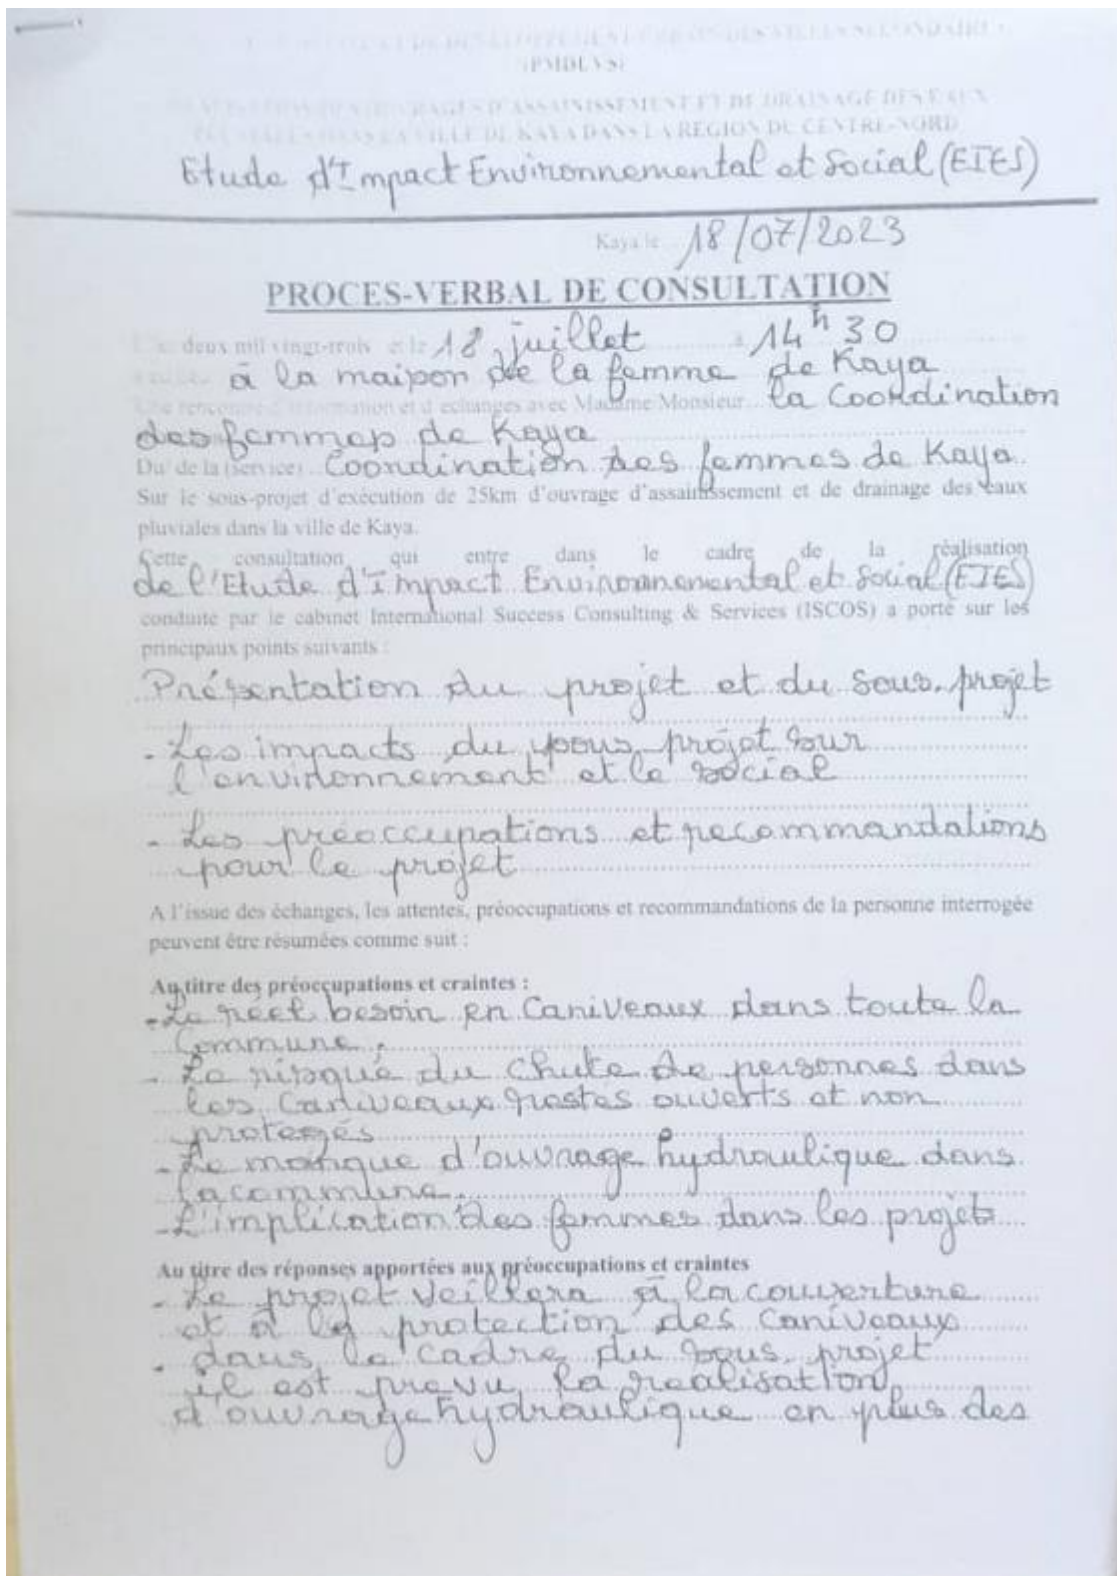 ET DE DEVELOPPEMENT URBAIN DES VILLES SECONDAIRES
(PMDUVS)
D'ASSAINISSEMENT ET DE DRAINAGE DES EAUX
DANS LA VILLE DE KAYA DANS LA REGION DU CENTRE-NORD
Etude d'Impact Environnemental et Social (EIES)
Kaya le 18/07/2023
PROCES-VERBAL DE CONSULTATION
deux mil vingt-trois et le 18 juillet à 14h30
à la maison de la femme de Kaya
Une rencontre d'information et d'echanges avec Madame Monsieur la Coordination
des femmes de Kaya
Du/de la (service) Coordination des femmes de Kaya
Sur le sous-projet d'exécution de 25km d'ouvrage d'assainissement et de drainage des eaux
pluviales dans la ville de Kaya.
Cette consultation qui entre dans le cadre de la réalisation
de l'Etude d'Impact Environnemental et Social (EIES)
conduite par le cabinet International Success Consulting & Services (ISCOS) a porté sur les
principaux points suivants :
Présentation du projet et du sous-projet
- Les impacts du sous projet sur
l'environnement et le social
- Les préoccupations et recommandations
pour le projet
A l'issue des échanges, les attentes, préoccupations et recommandations de la personne interrogée
peuvent être résumées comme suit :
Au titre des préoccupations et craintes :
- Le réel besoin en Caniveaux dans toute la
Commune.
- Le risque du chute de personnes dans
les caniveaux restes ouverts et non
protégés
- Le manque d'ouvrage hydraulique dans
la commune.
- L'implication des femmes dans les projets
Au titre des réponses apportées aux préoccupations et craintes
- Le projet veillera à la couverture
et à la protection des Caniveaux
- dans le cadre du sous projet
il est prevu la realisation
d'ouvrage hydraulique en plus des